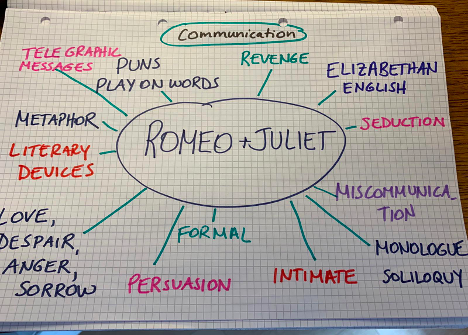 Communication
TELEGRAPHIC
MESSAGES
PUNS
PLAY ON WORDS
REVENGE
ELIZABETHAN
ENGLISH
METAPHOR
ROMEO + JULIET
SEDUCTION
LITERARY
DEVICES
MISCOMMUNICA-
TION
LOVE,
DESPAIR,
ANGER,
SORROW
FORMAL
MONOLOGUE
SOLILOQUY
PERSUASION
INTIMATE